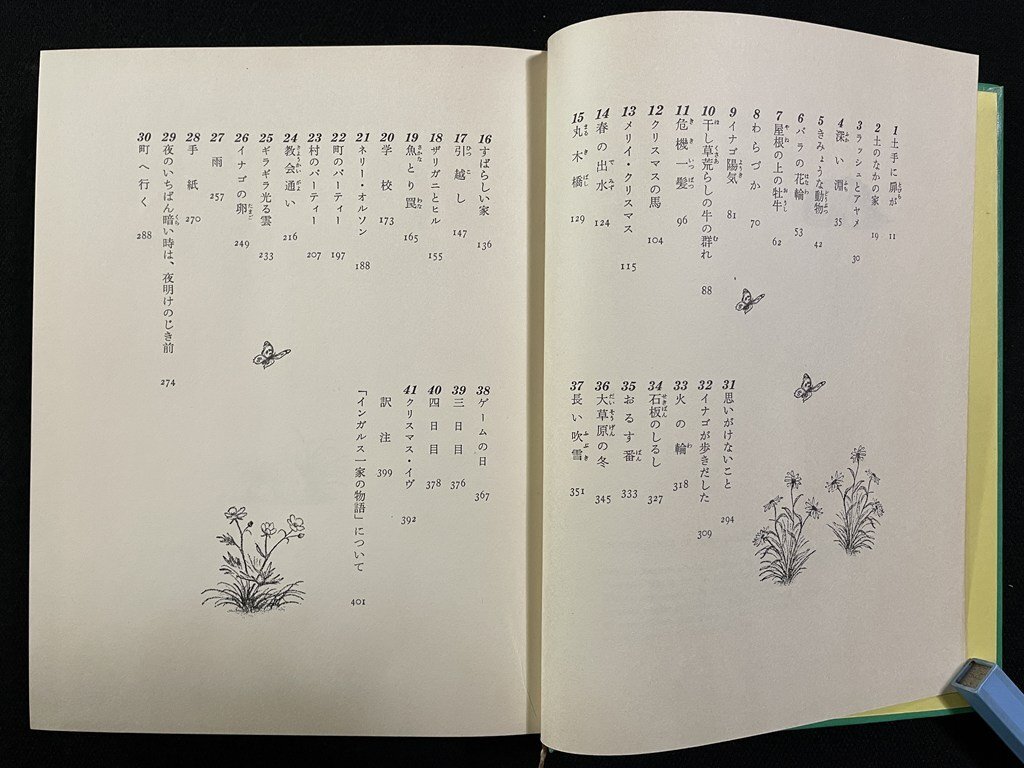 1 土手に扉が 11
2 土のなかの家 19
3 ラッシュとアヤメ 30
4 深い淵 35
5 きみょうな動物 42
6 バラの花輪 53
7 屋根の上の牡牛 62
8 わらづか 70
9 イナゴ陽気 81
10 干し草荒らしの牛の群れ 88
11 危機一髪 96
12 クリスマスの馬 104
13 メリイ・クリスマス 115
14 春の出水 124
15 丸木橋 129
16 すばらしい家 136
17 引越し 147
18 ザリガニとヒル 155
19 魚とり罠 165
20 学校 173
21 ネリー・オルソン 188
22 町のパーティー 197
23 村のパーティー 207
24 教会通い 216
25 ギラギラ光る雲 233
26 イナゴの卵 249
27 雨 257
28 手紙 270
29 夜のいちばん暗い時は、夜明けのじき前 274
30 町へ行く 288
31 思いがけないこと 294
32 イナゴが歩きだした 309
33 火の輪 318
34 石板のしるし 327
35 おるす番 333
36 大草原の冬 345
37 長い吹雪 351
38 ゲームの日 367
39 三日目 376
40 四日目 378
41 クリスマス・イヴ 392
訳注 399
「インガルス一家の物語」について 401